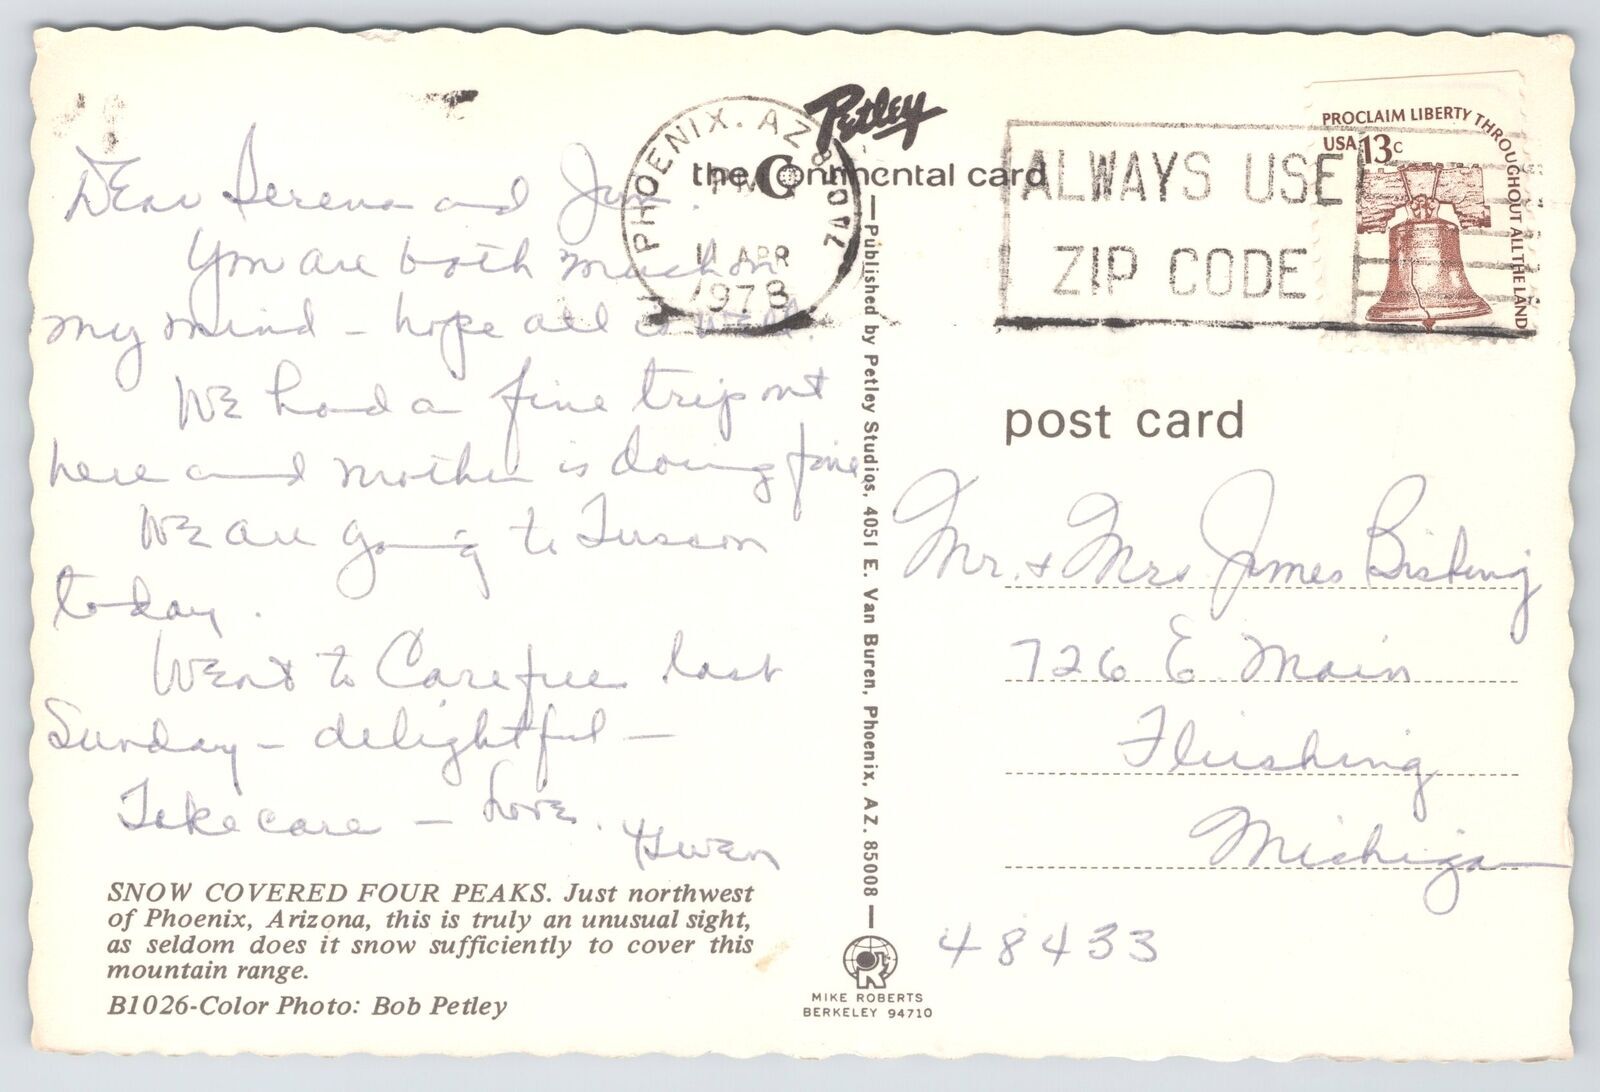 Dear Serena and Jim.
You are both much on
my mind - hope all is well.
We had a fine trip out
here and mother is doing fine
We are going to Tusson
today.
Went to Carefree last
Sunday - delightful -
Take care - Love.
Gwen
SNOW COVERED FOUR PEAKS. Just northwest
of Phoenix, Arizona, this is truly an unusual sight,
as seldom does it snow sufficiently to cover this
mountain range.
B1026-Color Photo: Bob Petley
Petley
the Continental card
PHOENIX. AZ 850
PM
11 APR
1978
ALWAYS USE
ZIP CODE
PROCLAIM LIBERTY THROUGHOUT ALL THE LAND
USA 13c
Published by Petley Studios, 4051 E. Van Buren, Phoenix, AZ. 85008
post card
Mr. & Mrs James Bisbing
726 E. Main
Flushing
Michigan
48433
MIKE ROBERTS
BERKELEY 94710